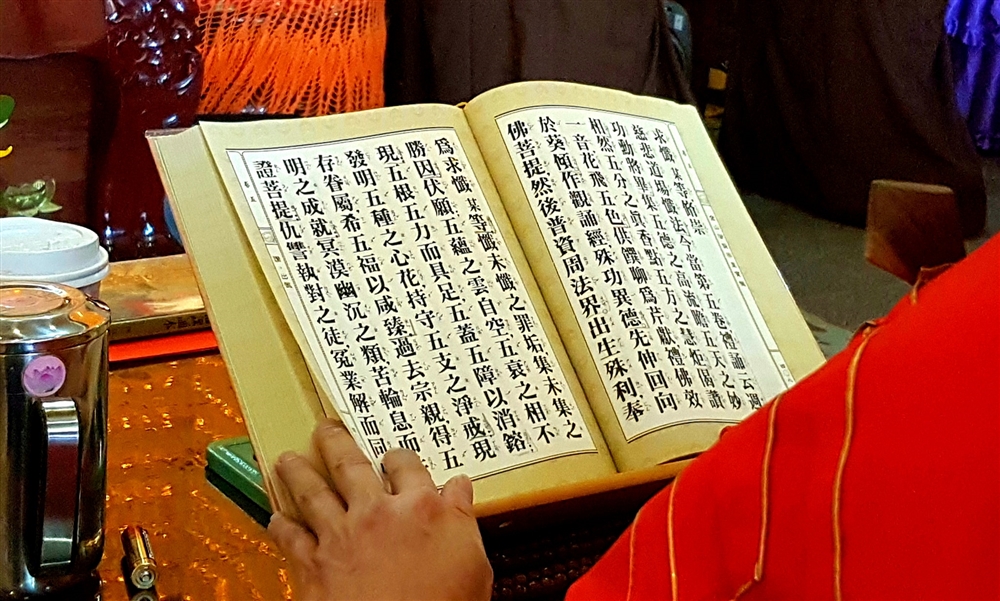 求懺某等脩崇
慈悲道場懺法今當第五卷禮誦云週
功勳將畢集五德之高流瞻五天之妙
相然五分之真香點五方之慧炬偈讚
一音花飛五色供饌聊為芹獻禮佛效
於葵傾作觀誦經殊功異德先伸回向
佛菩提然後普資周法界出生殊利奉
為求懺某等懺未懺之罪垢集未集之
勝因伏願五蘊之雲自空五衰之相不
現五根五力而具足五蓋五障以消鎔
發明五種之心花持守五支之淨戒現
存眷屬希五福以咸臻過去宗親得五
明之成就冥漠幽沉之類苦輪息而
證菩提仇讐執對之徒冤業解而同